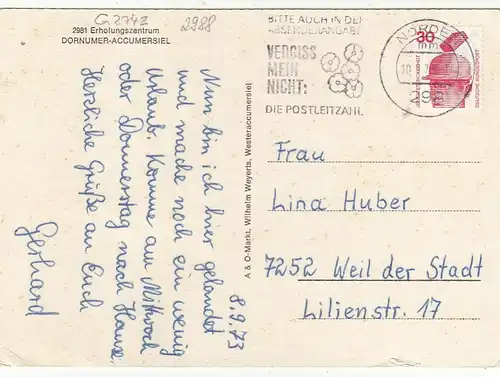 G 2742
2988
2981 Erholungszentrum
DORNUMER-ACCUMERSIEL
BITTE AUCH IN DER
ABSENDERANGABE
VERGISS
MEIN
NICHT:
DIE POSTLEITZAHL
NORDEN
30
DEUTSCHE BUNDESPOST
8.9.73
Nun bin ich hier gelandet
und mache noch ein wenig
Urlaub. Komme am Mittwoch
oder Donnerstag nach Hause.
Herzliche Grüße an Euch
Gerhard
A & O-Markt, Wilhelm Weyerts, Westeraccumersiel
Frau
Lina Huber
7252 Weil der Stadt
Lilienstr. 17